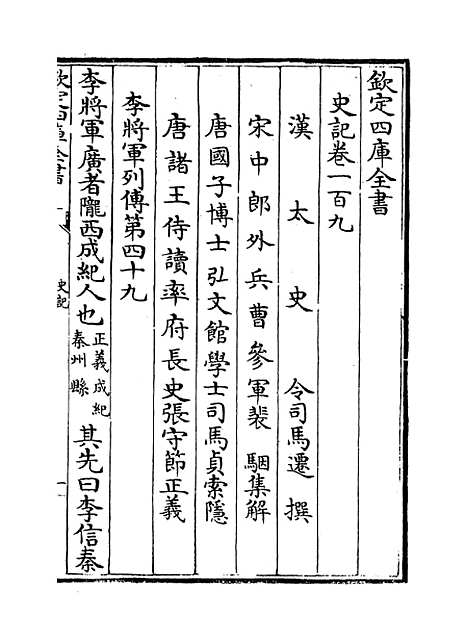 欽定四庫全書
史記卷一百九
漢太史令司馬遷撰
宋中郎外兵曹參軍裴駰集解
唐國子博士弘文館學士司馬貞索隱
唐諸王侍讀率府長史張守節正義
李將軍列傳第四十九
李將軍廣者隴西成紀人也正義成紀秦州縣其先曰李信秦
史記